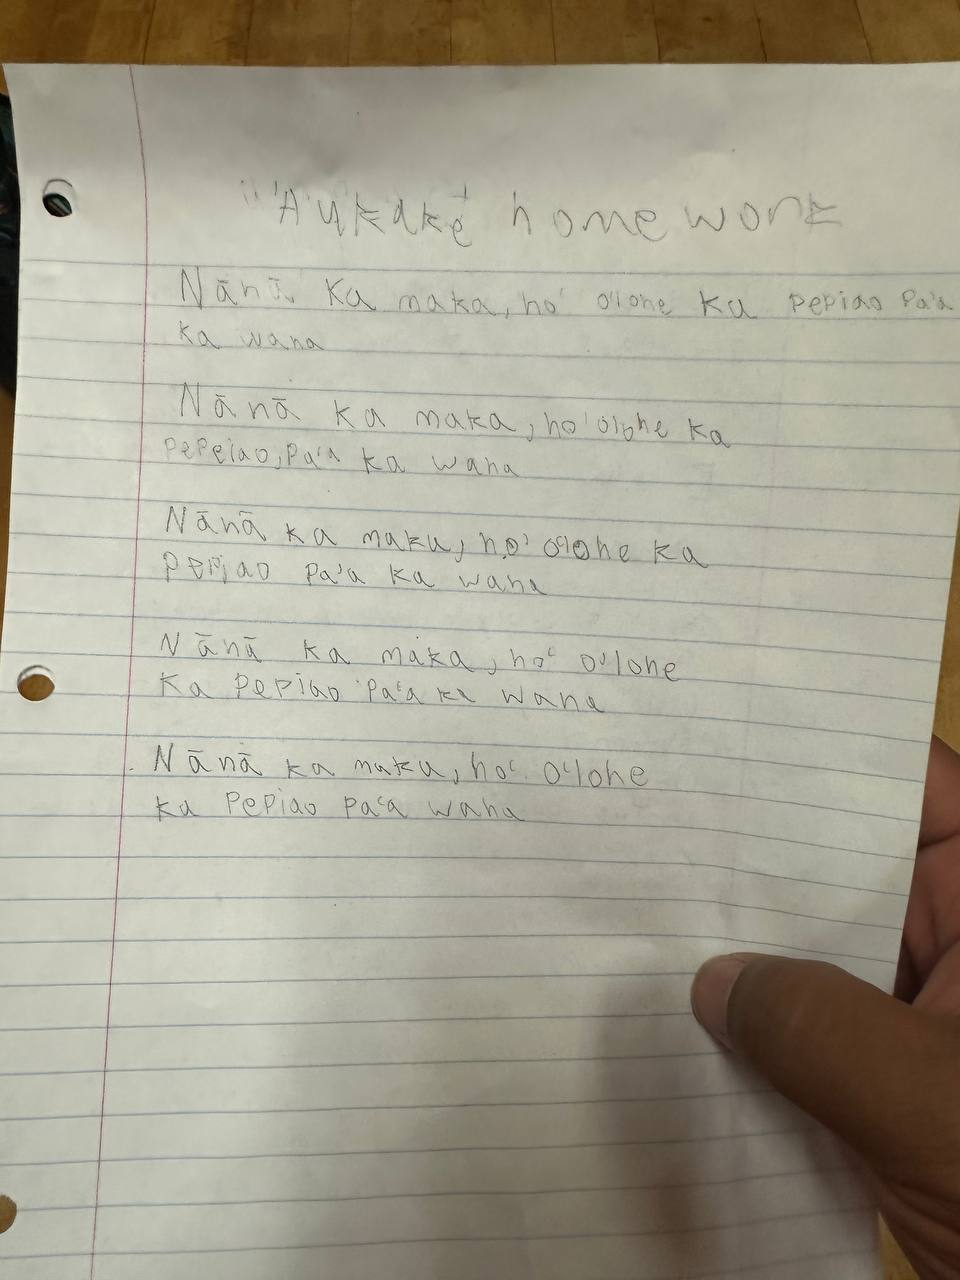 'Aukake homework
Nānā ka maka, ho' o'lohe ka pepiao pa'a
ka waha
Nānā ka maka, ho'olohe ka
pepeiao, pa'a ka waha
Nānā ka maka, ho' o'lohe ka
pepiao pa'a ka waha
Nānā ka maka, ho' o'lohe
ka pepiao pa'a ka waha
Nānā ka maka, ho' o'lohe
ka pepiao pa'a waha